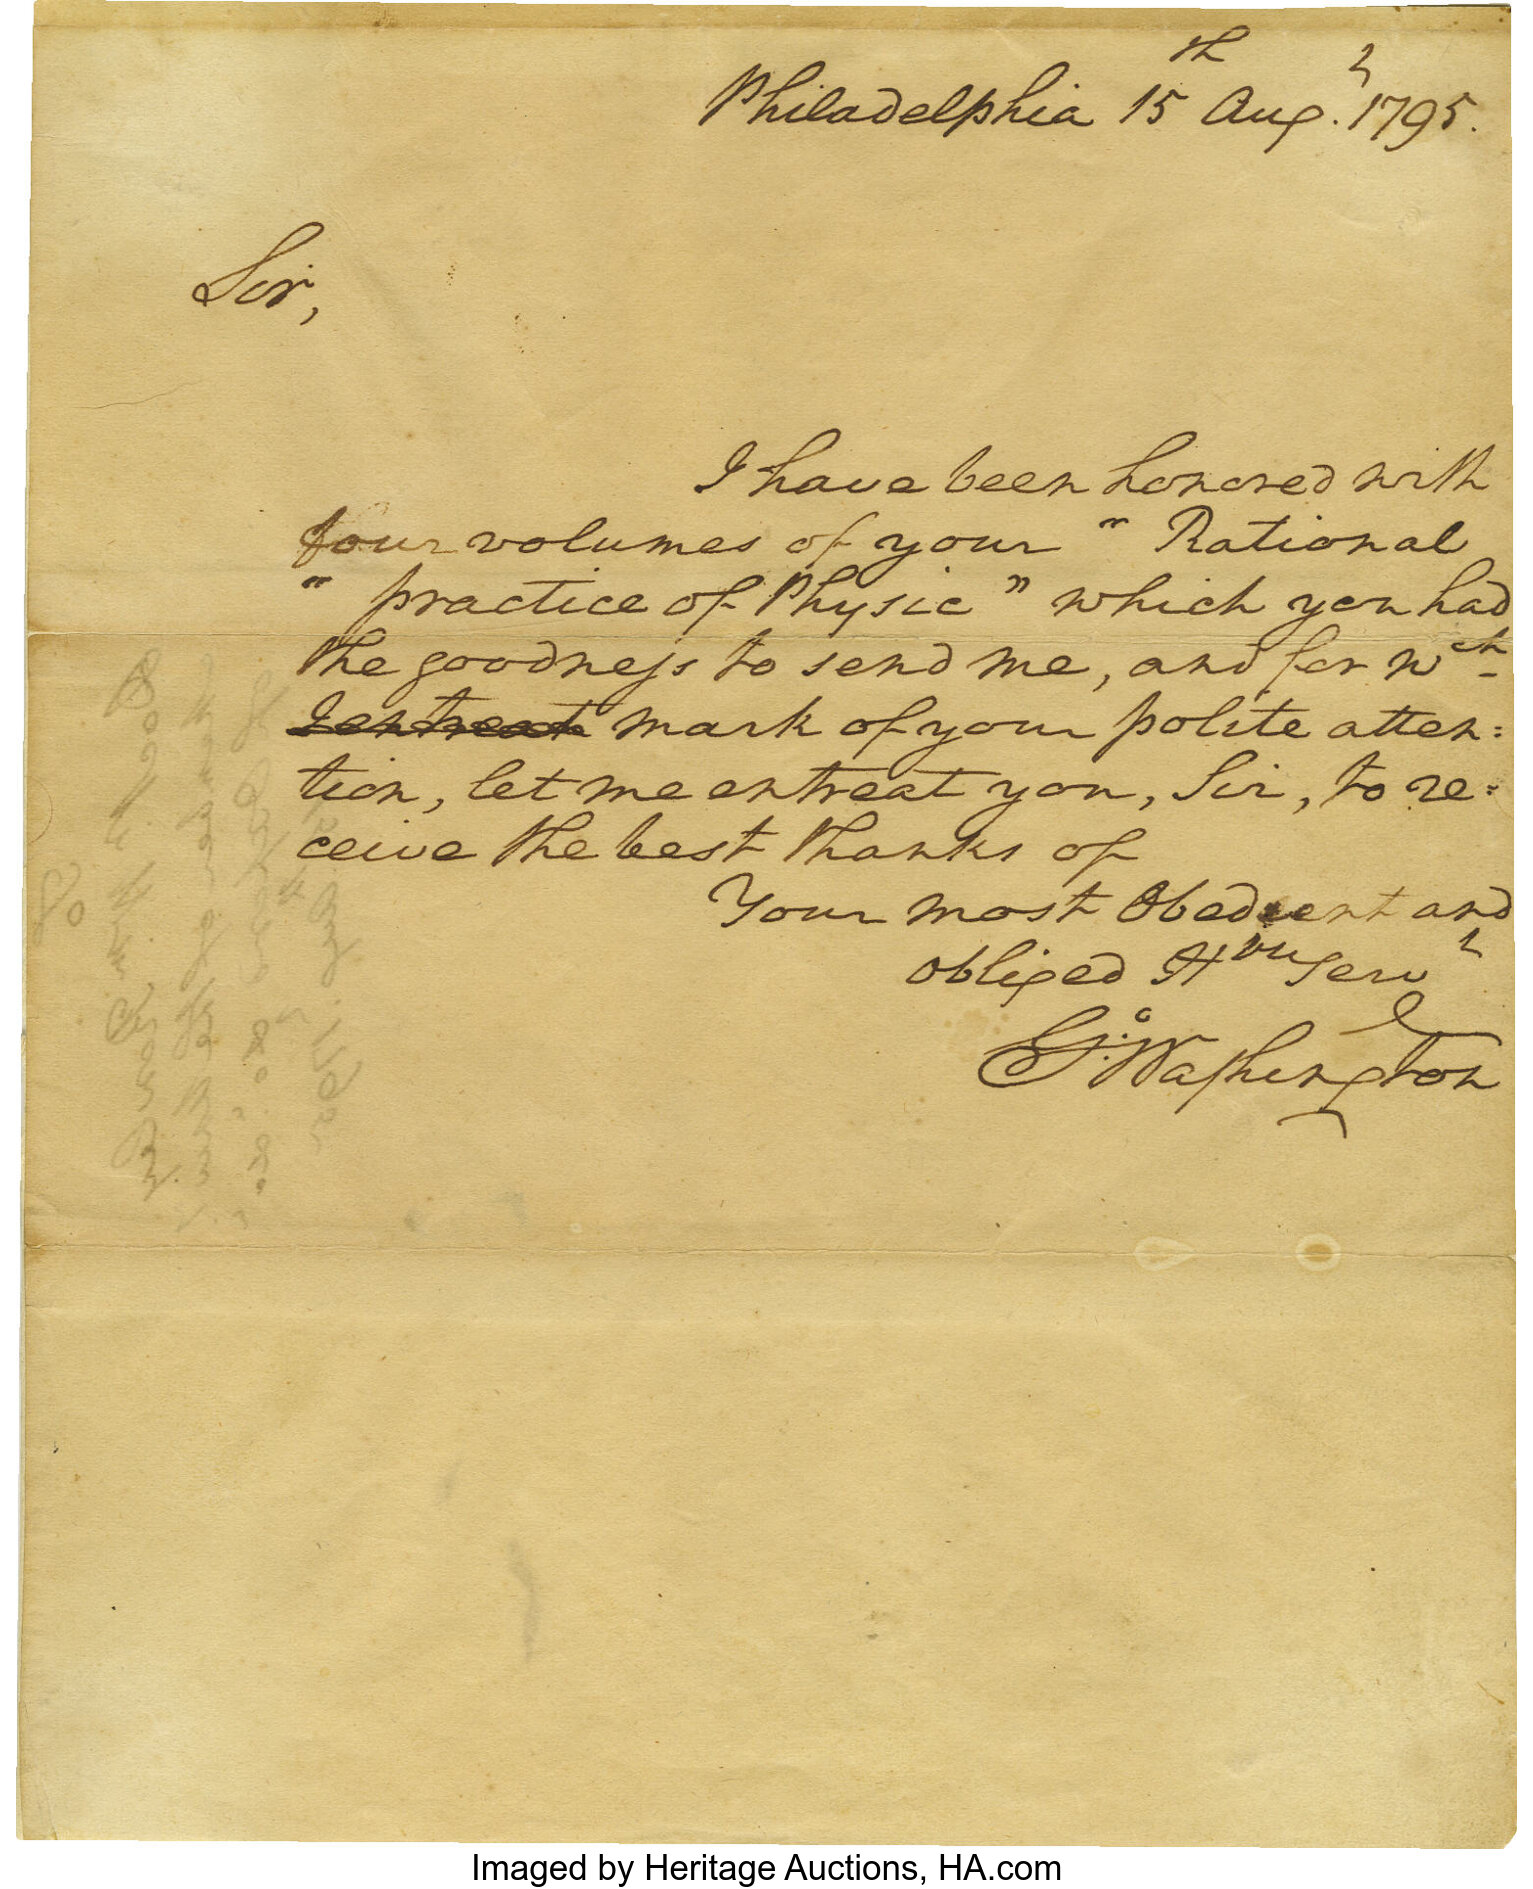 Philadelphia 15th Augt. 1795.
Sir,
I have been honored with
four volumes of your " Rational
" practice of Physic " which you had
the goodness to send me, and for wch
I entreat mark of your polite atten:
tion, let me entreat you, Sir, to re:
ceive the best thanks of
Your most Obedient and
obliged Hble Servt
Go: Washington
Imaged by Heritage Auctions, HA.com